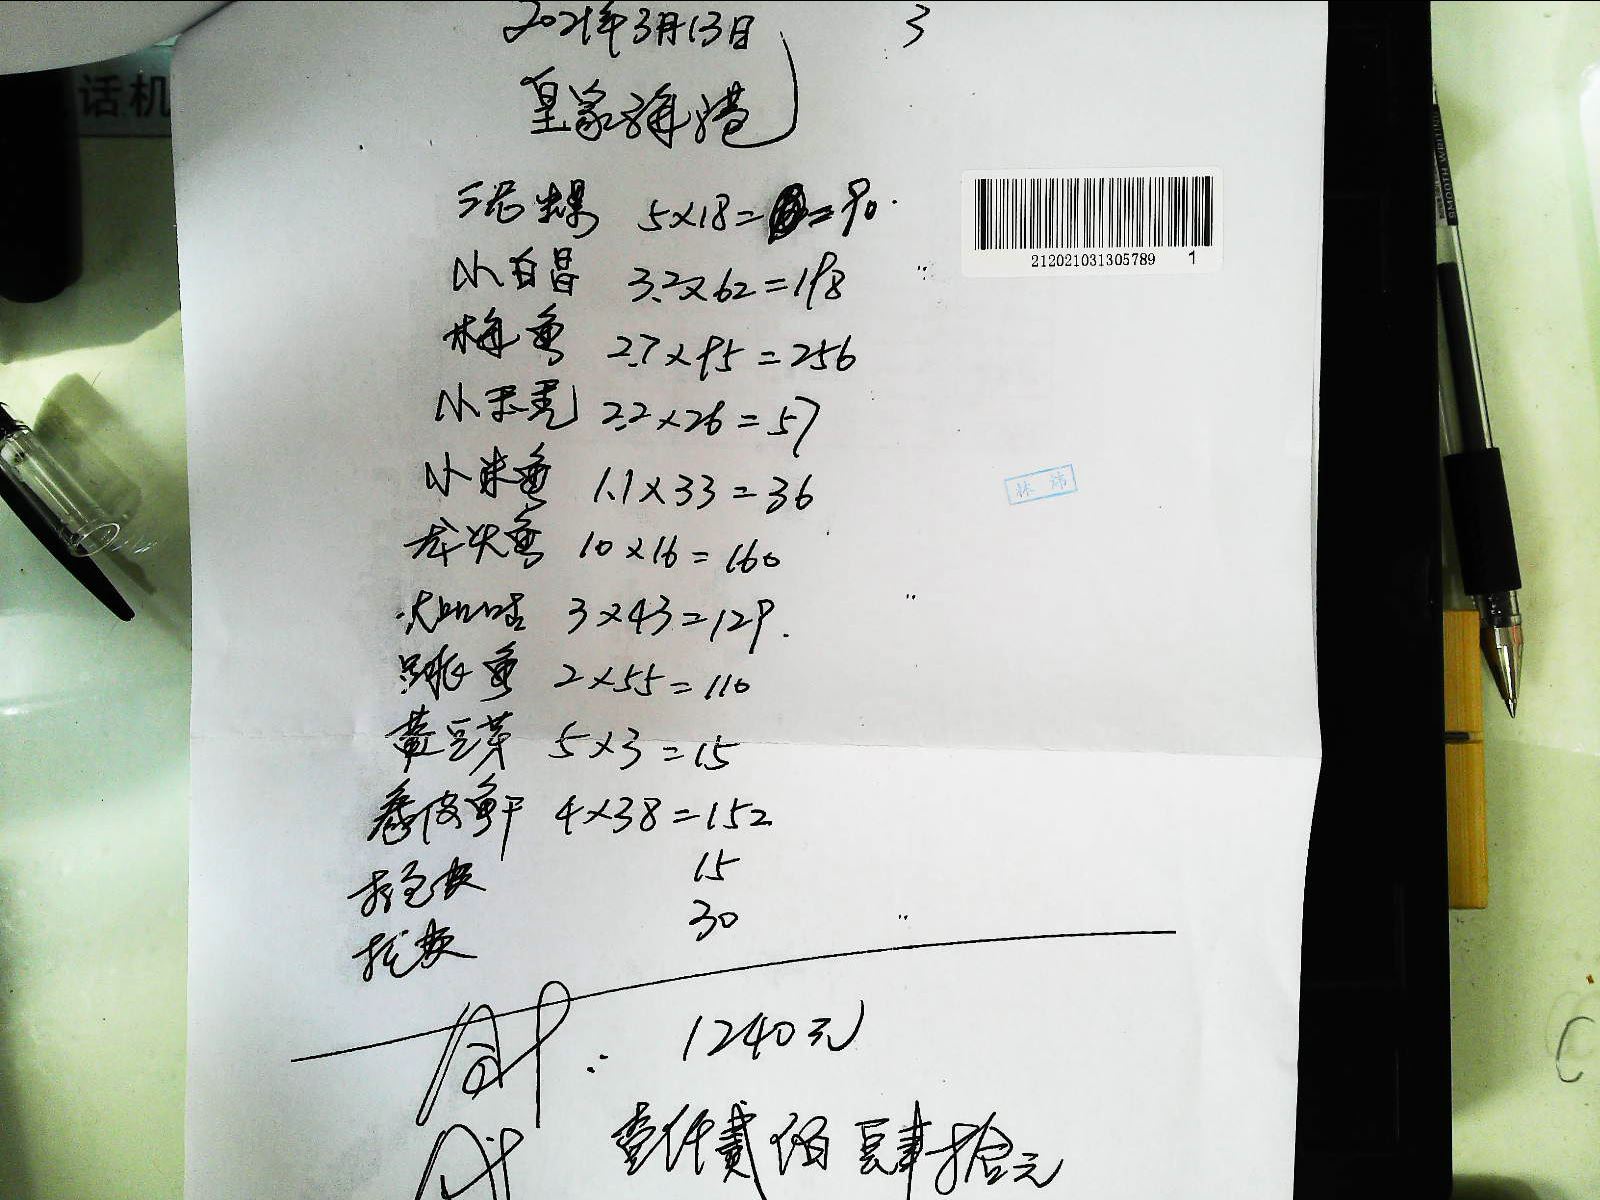 2021年3月13日 3
皇家海港
话机
泥螺 5×18==90.
212021031305789 1
小白昌 3.2×62=198
梅鱼 2.7×95=256
SMOOTH WRITING
小 2.2×26=57
小米鱼 1.1×33=36
林
龙头鱼 10×16=160
大 3×43=129.
跳鱼 2×55=110
黄豆芽 5×3=15
皮鱼干 4×38=152
打包费 15
费 30
合计: 1240元
合计 壹仟贰佰肆拾元